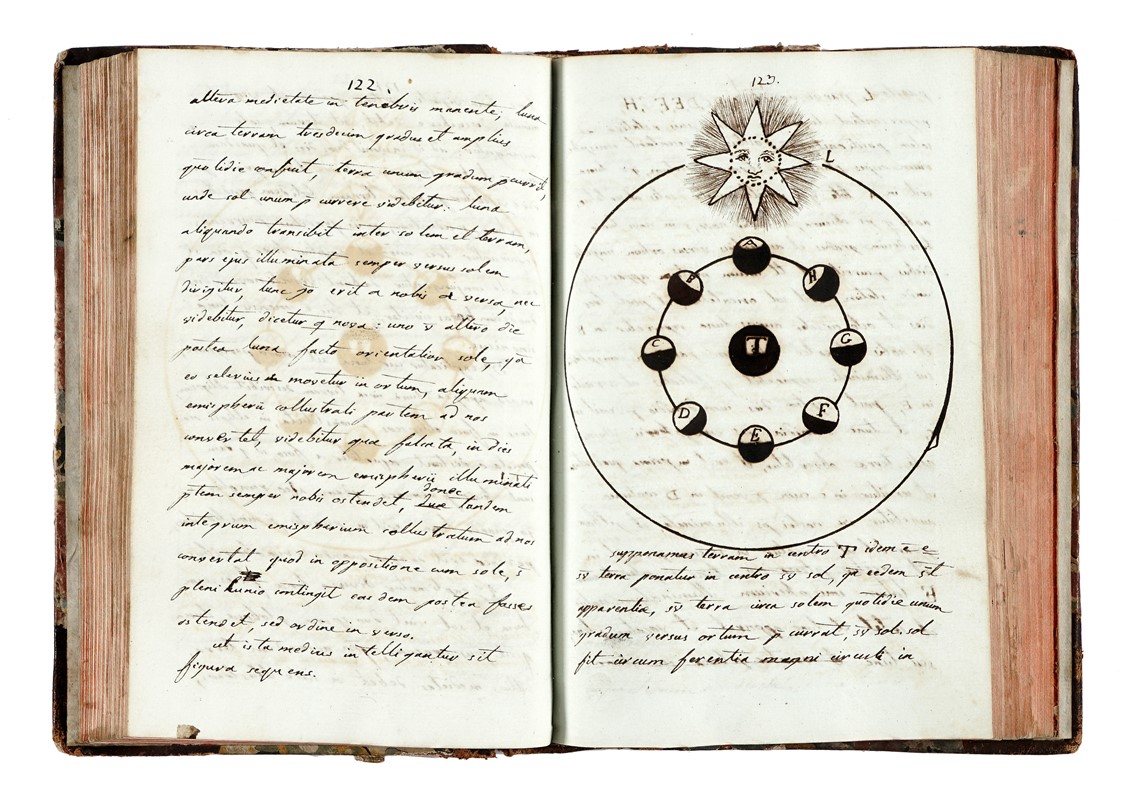 122.
altera medietate in tenebris manente, luna
circa terram tresdecim gradus et amplius
quotidie conficit, terra unum gradum p currit,
unde sol unum p currere videbitur. luna
aliquando transibit inter solem et terram,
pars ejus illuminata semper versus solem
dirigitur, tunc go erit a nobis a versa, nec
videbitur, dicetur q nova: uno v altero die
postea luna facto orientalior sole, qa
eo celerius movetur in ortum, aliquam
emispherii collustrati partem ad nos
convertet, videbitur quae falcata, in dies
majorem ac majorem emispherii illuminati
ptem semper nobis ostendet, donec tandem
integrum emispherium collustratum ad nos
convertat quod in oppositione cum sole, s
plenilunio contingit easdem postea fasses
ostendet, sed ordine in verso.
ut ista medius intelligantur sit
figura sequens.
123.
L
A
B
H
C
T
G
D
F
E
supponamus terram in centro T idem e e
sv terra ponatur in centro sv sol, qa eedem st
apparentia, sv terra circa solem quotidie unum
gradum versus ortum p currat, sv sol. sol
fit circum ferentia magni circuli in